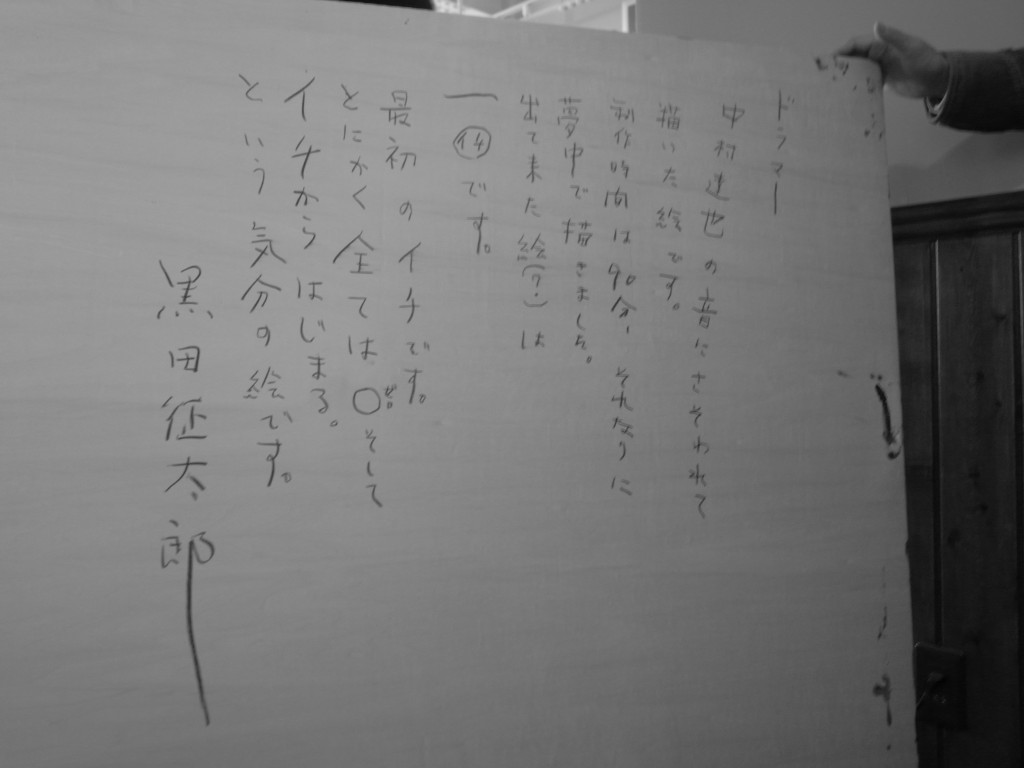 ドラマー
中村達也の音にさそわれて
描いた絵です。
制作時間は90分、それなりに
夢中で描きました。
出て来た絵(?)は
一㋑です。
最初のイチです。
とにかく全ては〇ゼロそして
イチからはじまる。
という気分の絵です。
黒田征太郎